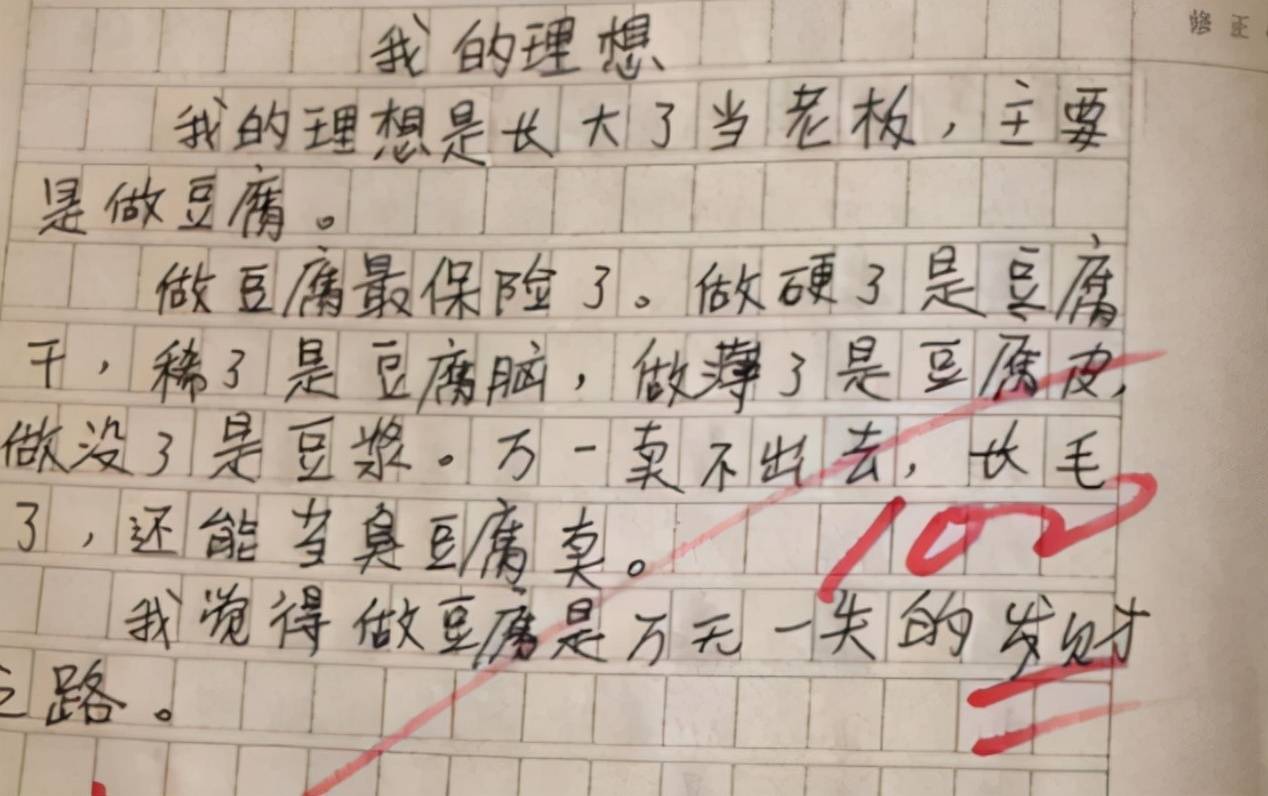 修正
我的理想
我的理想是长大了当老板，主要
是做豆腐。
做豆腐最保险了。做硬了是豆腐
干，稀了是豆腐脑，做薄了是豆腐皮，
做没了是豆浆。万一卖不出去，长毛
了，还能当臭豆腐卖。
我觉得做豆腐是万无一失的发财
之路。
100